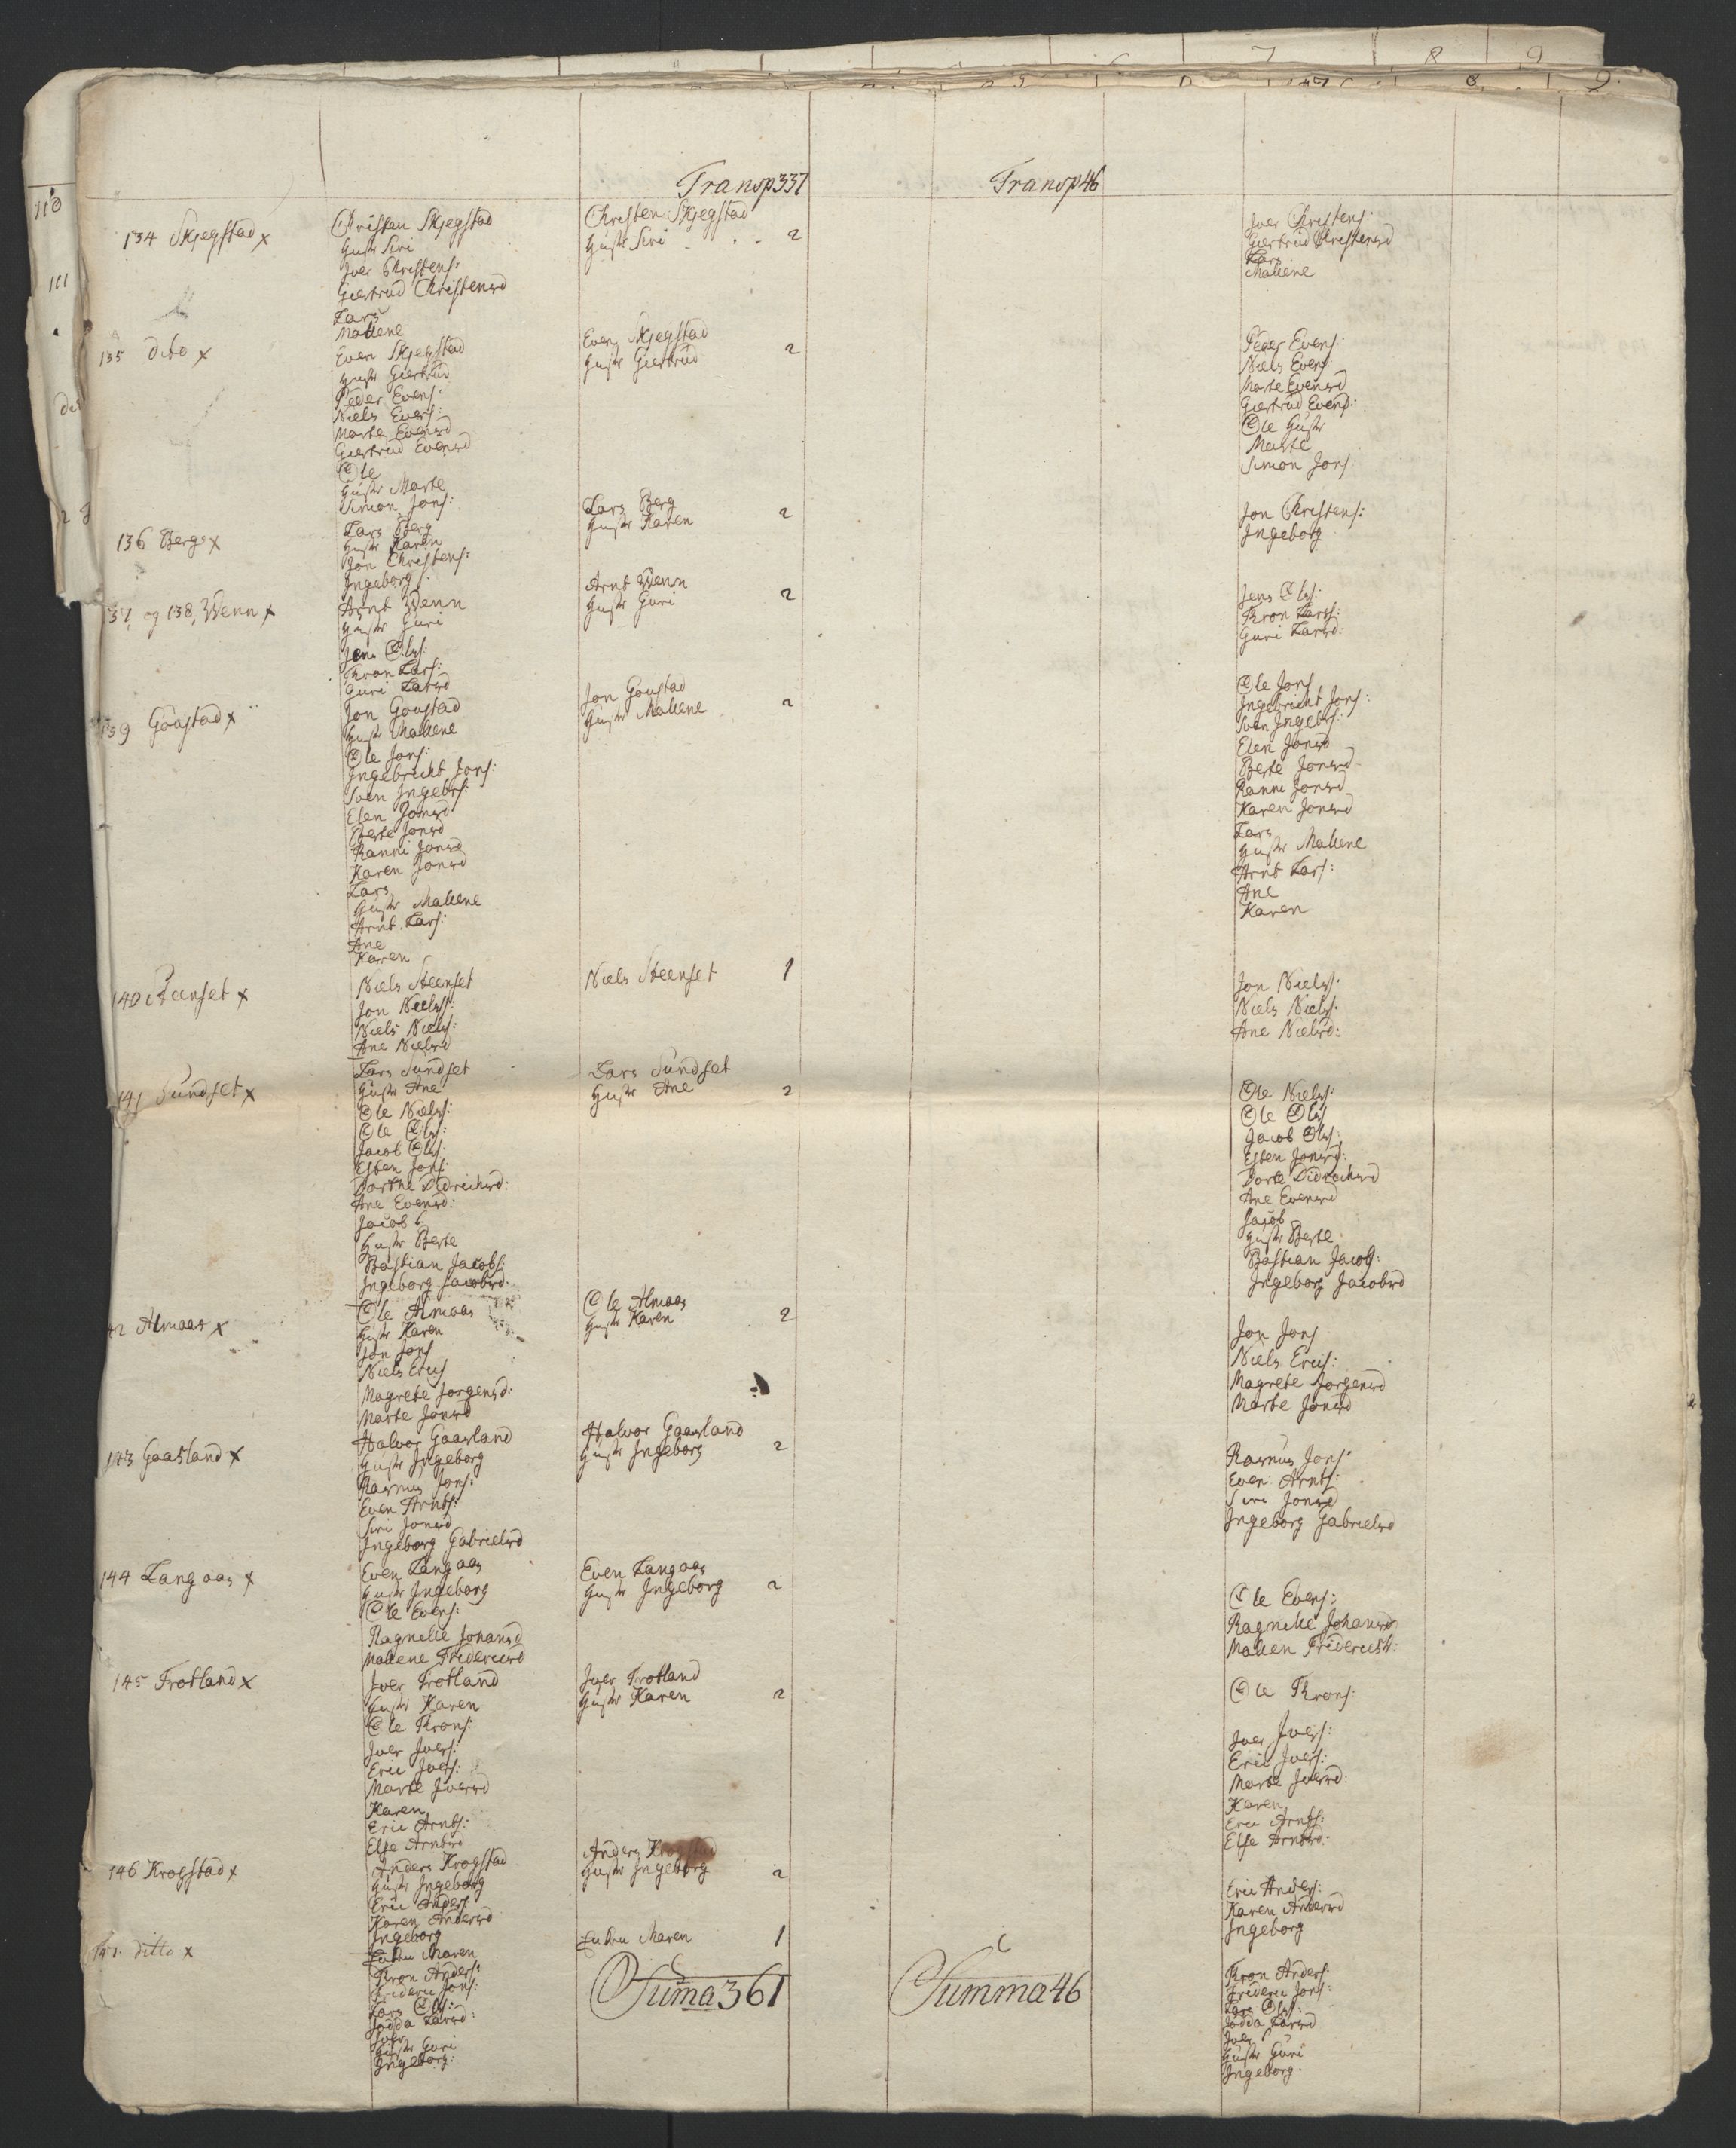 6 7 8 9
8 9
110
111
Transp 337
Transp 46
134 Skjegstad x
Christen Skjegstad
Hustr Siri
Iver Christens:
Giertrud Christensd
Lars
Mallene
Christen Skjegstad
Hustr Siri . . . 2
Iver Christens:
Giertrud Christensd
Lars
Mallene
135 dito x
Even Skjegstad
Hustr Giertrud
Peder Evens:
Niels Evens:
Marte Evensd
Giertrud Evensd
Ole
Hustr Marte
Simon Jons:
Even Skjegstad
Hustr Giertrud 2
Peder Evens:
Niels Evens:
Marte Evensd
Giertrud Evensd:
Ole Hustr
Marte
Simon Jons
136 Berg x
Lars Berg
Hustr Karen
Jon Christens:
Ingeborg
Lars Berg
Hustr Karen 2
Jon Christens:
Ingeborg
137 og 138, Wenn x
Arnt Wenn
Hustr Guri
Jens Ols:
Thron Lars:
Guri Larsd
Arnt Wenn
Hustr Guri 2
Jens Ols:
Thron Lars:
Guri Larsd:
139 Goustad x
Jon Goustad
Hustr Mallene
Ole Jons:
Ingebricht Jons:
Sven Ingebrs:
Elen Jonsd
Berte Jonsd
Ranni Jonsd
Karen Jonsd
Lars
Hustr Mallene
Arnt Lars:
Ane
Karen
Jon Goustad
Hustr Mallene 2
Ole Jons
Ingebricht Jons:
Sven Ingebrs:
Elen Jonsd
Berte Jonsd
Ranni Jonsd
Karen Jonsd
Lars
Hustr Mallene
Arnt Lars:
Ane
Karen
140 Steenset x
Niels Steenset
Jon Nielss:
Niels Niels:
Ane Nielsd
Niels Steenset 1
Jon Niels:
Niels Niels:
Ane Nielsd:
141 Sundset x
Lars Sundset
Hustr Ane
Ole Nielss:
Ole Ols:
Jacob Ols:
Esten Jons:
Dorthe Didrichsd:
Ane Evensd:
Jacob
Hustr Berte
Bastian Jacobs:
Ingeborg Jacobsd:
Lars Sundset
Hustr Ane 2
Ole Nielss:
Ole Ols
Jacob Ols
Esten Jons:
Dorte Didrichsd
Ane Evensd
Jacob
Hustr Berte
Bastian Jacobs:
Ingeborg Jacobsd
Almaas x
Ole Almaas
Hustr Karen
Jon Jons
Niels Erics
Magrete Jorgensd:
Marte Jonsd
Ole Almaas
Hustr Karen 2
Jon Jons
Niels Erics:
Magrete Jorgensd
Marte Jonsd
143 Gaasland x
Halvor Gaasland
Hustr Ingeborg
Rasmus Jons:
Even Arnts:
Siri Jonsd
Ingeborg Gabrielsd
Halvor Gaasland
Hustr Ingeborg 2
Rasmus Jons:
Even Arnts:
Siri Jonsd
Ingeborg Gabrielsd
144 Langaas x
Even Langaas
Hustr Ingeborg
Ole Evens:
Ragnille Johansd
Mallene Fridericsd
Even Langaas
Hustr Ingeborg 2
Ole Evens:
Ragnille Johansd
145 Trotland x
Iver Trotland
Hustr Karen
Ole Throns:
Iver Ivers:
Eric Ivers:
Marte Iversd
Karen
Eric Arnts:
Else Arntsd
Iver Trotland
Hustr Karen 2
Ole Throns:
Iver Ivers:
Eric Ivers:
Marte Iversd:
Karen
Eric Arnts:
Else Arntsd:
146 Krogstad x
Anders Krogstad
Hustr Ingeborg
Eric Anders
Karen Andersd
Ingeborg
Anders Krogstad
Hustr Ingeborg 2
Eric Anders:
Karen Andersd
Ingeborg
ditto x
Enken Maren
Thron Anders:
Frideric Jons:
Lars Ols:
Jodda Larsd:
Iver
Hustr Guri
Ingeborg:
Enken Maren 1
Thron Anders:
Frideric Jons:
Lars Ols:
Jodda Larsd
Iver
Hustr Guri
Ingeborg
Suma 361
Summa 46